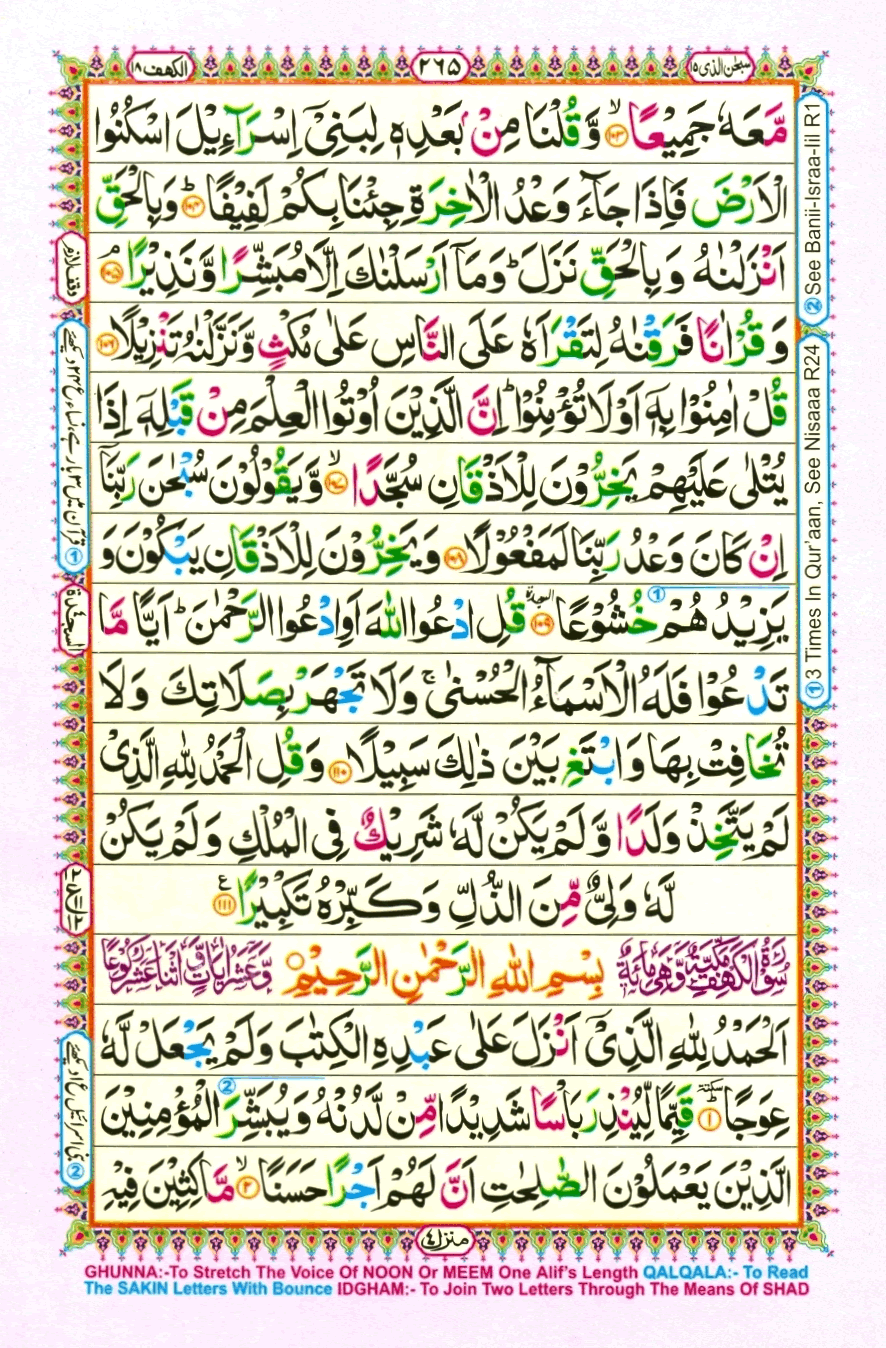 الكهف ١٨
٢٦٥
سبحٰن الذى ١٥
مَّعَهٗ جَمِيْعًا ۙ‏﴿۱۰۳﴾ وَّقُلْنَا مِنْۢ بَعْدِهٖ لِبَنِىْۤ اِسْرَآءِيْلَ اسْكُنُوا
الْاَرْضَ فَاِذَا جَآءَ وَعْدُ الْاٰخِرَةِ جِئْنَا بِكُمْ لَفِيْفًا ؕ‏﴿۱۰۴﴾ وَبِالْحَقِّ
اَنْزَلْنٰهُ وَبِالْحَقِّ نَزَلَ ؕ وَمَاۤ اَرْسَلْنٰكَ اِلَّا مُبَشِّرًا وَّنَذِيْرًا ۘ‏﴿۱۰۵﴾
وَقُرْاٰنًا فَرَقْنٰهُ لِتَقْرَاَهٗ عَلَى النَّاسِ عَلٰى مُكْثٍ وَّنَزَّلْنٰهُ تَنْزِيْلًا ﴿۱۰۶﴾
قُلْ اٰمِنُوْا بِهٖۤ اَوْ لَا تُؤْمِنُوْا ؕ اِنَّ الَّذِيْنَ اُوْتُوا الْعِلْمَ مِنْ قَبْلِهٖۤ اِذَا
يُتْلٰى عَلَيْهِمْ يَخِرُّوْنَ لِلْاَذْقَانِ سُجَّدًا ۙ‏﴿۱۰۷﴾ وَّيَقُوْلُوْنَ سُبْحٰنَ رَبِّنَاۤ
اِنْ كَانَ وَعْدُ رَبِّنَا لَمَفْعُوْلًا ﴿۱۰۸﴾ وَيَخِرُّوْنَ لِلْاَذْقَانِ يَبْكُوْنَ وَ
يَزِيْدُهُمْ خُشُوْعًا ۩ ﴿۱۰۹﴾ السجدة قُلِ ادْعُوا اللّٰهَ اَوِ ادْعُوا الرَّحْمٰنَ ؕ اَيًّا مَّا
①
تَدْعُوْا فَلَهُ الْاَسْمَآءُ الْحُسْنٰى ۚ وَلَا تَجْهَرْ بِصَلَاتِكَ وَلَا
تُخَافِتْ بِهَا وَابْتَغِ بَيْنَ ذٰلِكَ سَبِيْلًا ﴿۱۱۰﴾ وَقُلِ الْحَمْدُ لِلّٰهِ الَّذِىْ
لَمْ يَتَّخِذْ وَلَدًا وَّلَمْ يَكُنْ لَّهٗ شَرِيْكٌ فِى الْمُلْكِ وَلَمْ يَكُنْ
لَّهٗ وَلِىٌّ مِّنَ الذُّلِّ وَكَبِّرْهُ تَكْبِيْرًا ﴿۱۱۱﴾ ع
سُوْرَةُ الْكَهْفِ مَكِّيَّةٌ وَّهِىَ مِائَةٌ بِسْمِ اللّٰهِ الرَّحْمٰنِ الرَّحِيْمِ وَّعَشْرُ اٰيَاتٍ وَّاثْنَا عَشَرَ رُكُوْعًا
اَلْحَمْدُ لِلّٰهِ الَّذِىْۤ اَنْزَلَ عَلٰى عَبْدِهِ الْكِتٰبَ وَلَمْ يَجْعَلْ لَّهٗ
عِوَجًا ؕ سكتة ﴿۱﴾ قَيِّمًا لِّيُنْذِرَ بَاْسًا شَدِيْدًا مِّنْ لَّدُنْهُ وَيُبَشِّرَ الْمُؤْمِنِيْنَ
②
الَّذِيْنَ يَعْمَلُوْنَ الصّٰلِحٰتِ اَنَّ لَهُمْ اَجْرًا حَسَنًا ۙ‏﴿۲﴾ مَّاكِثِيْنَ فِيْهِ
منزل ٤
② See Banii-Israa-Iil R1
① 3 Times In Qur'aan, See Nisaaa R24
وقف لازم
السجدة ٤
GHUNNA:-To Stretch The Voice Of NOON Or MEEM One Alif's Length QALQALA:- To Read
The SAKIN Letters With Bounce IDGHAM:- To Join Two Letters Through The Means Of SHAD